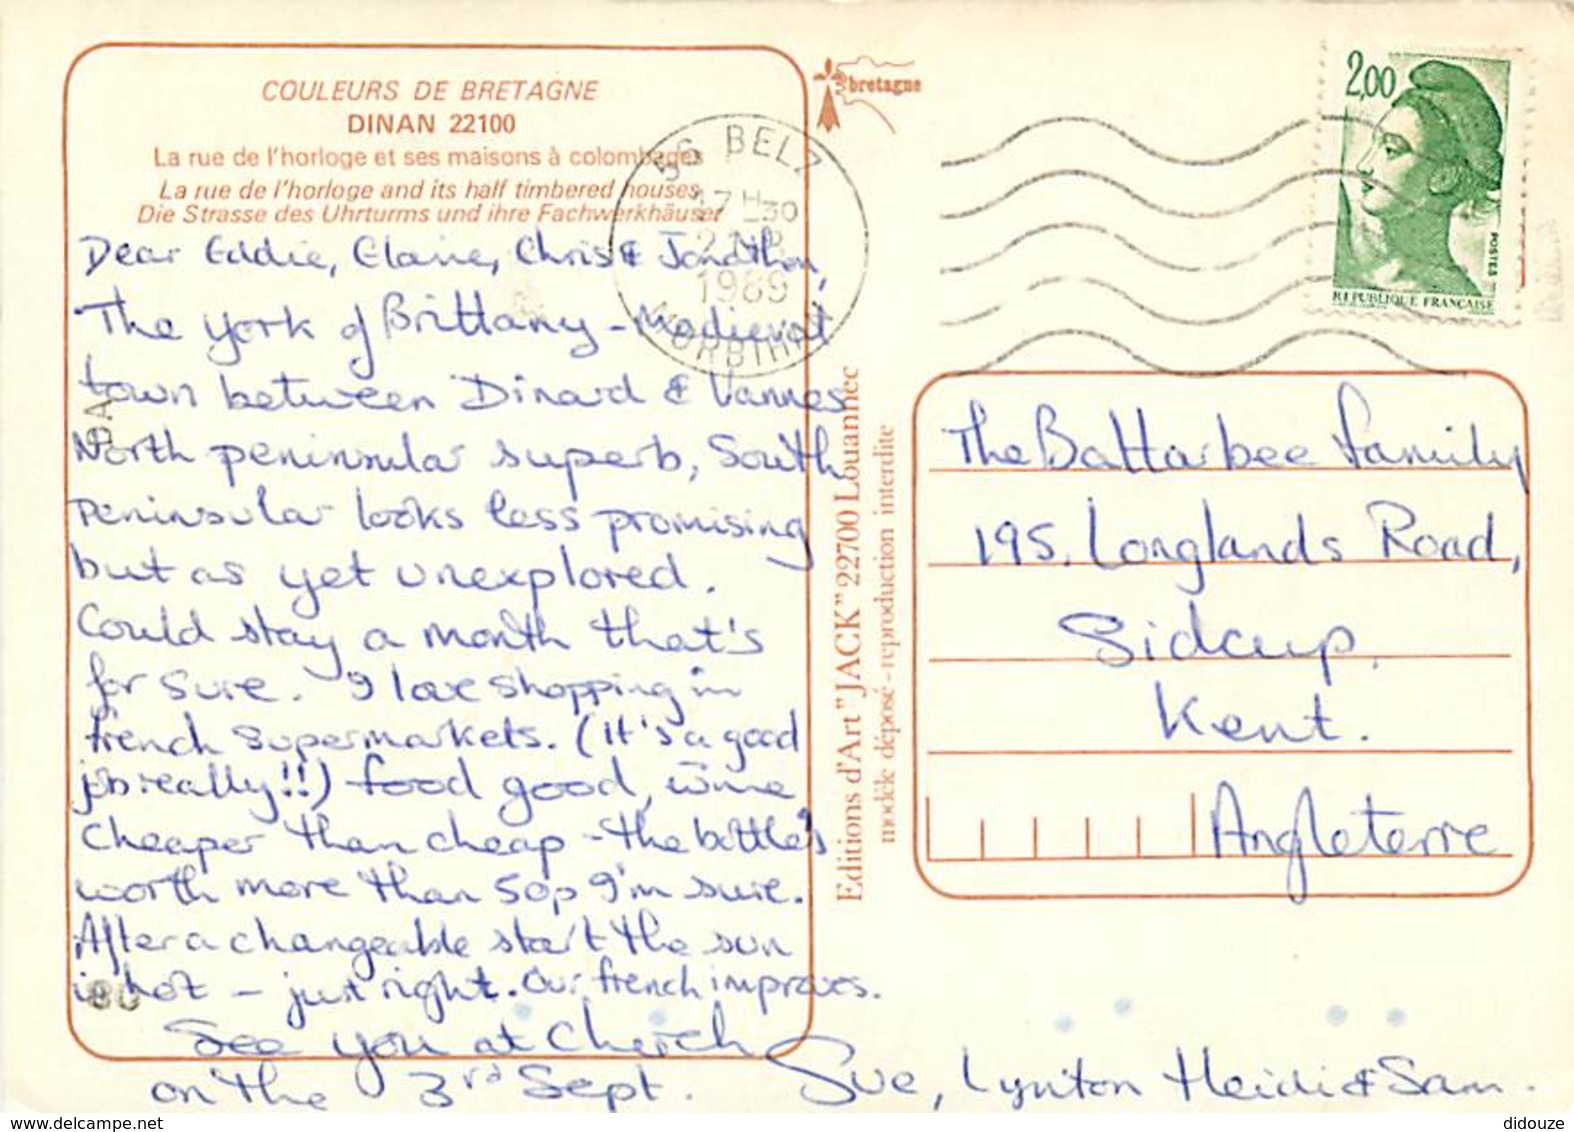 COULEURS DE BRETAGNE
DINAN 22100
La rue de l'horloge et ses maisons à colombages
La rue de l'horloge and its half timbered houses
Die Strasse des Uhrturms und ihre Fachwerkhäuser
Dear Eddie, Elaine, Chris & Jonathon,
The York of Brittany - Medieval
town between Dinard & Vannes
North peninsular superb, South
Peninsular looks less promising
but as yet unexplored.
Could stay a month that's
for sure. I love shopping in
french supermarkets. (It's a good
job really!!) food good, wine
cheaper than cheap - the bottle's
worth more than 50p I'm sure.
After a changeable start the sun
is hot - just right. Our french improves.
See you at Church
on the 3rd Sept.
Sue, Lynton Heidi & Sam.
bretagne
Editions d'Art "JACK" 22700 Louannec
modèle déposé - reproduction interdite
56 BELZ
17H30
1989
MORBIHAN
2,00
POSTES
REPUBLIQUE FRANÇAISE
The Battarbee Family
195, Longlands Road,
Sidcup,
Kent.
Angleterre
didouze